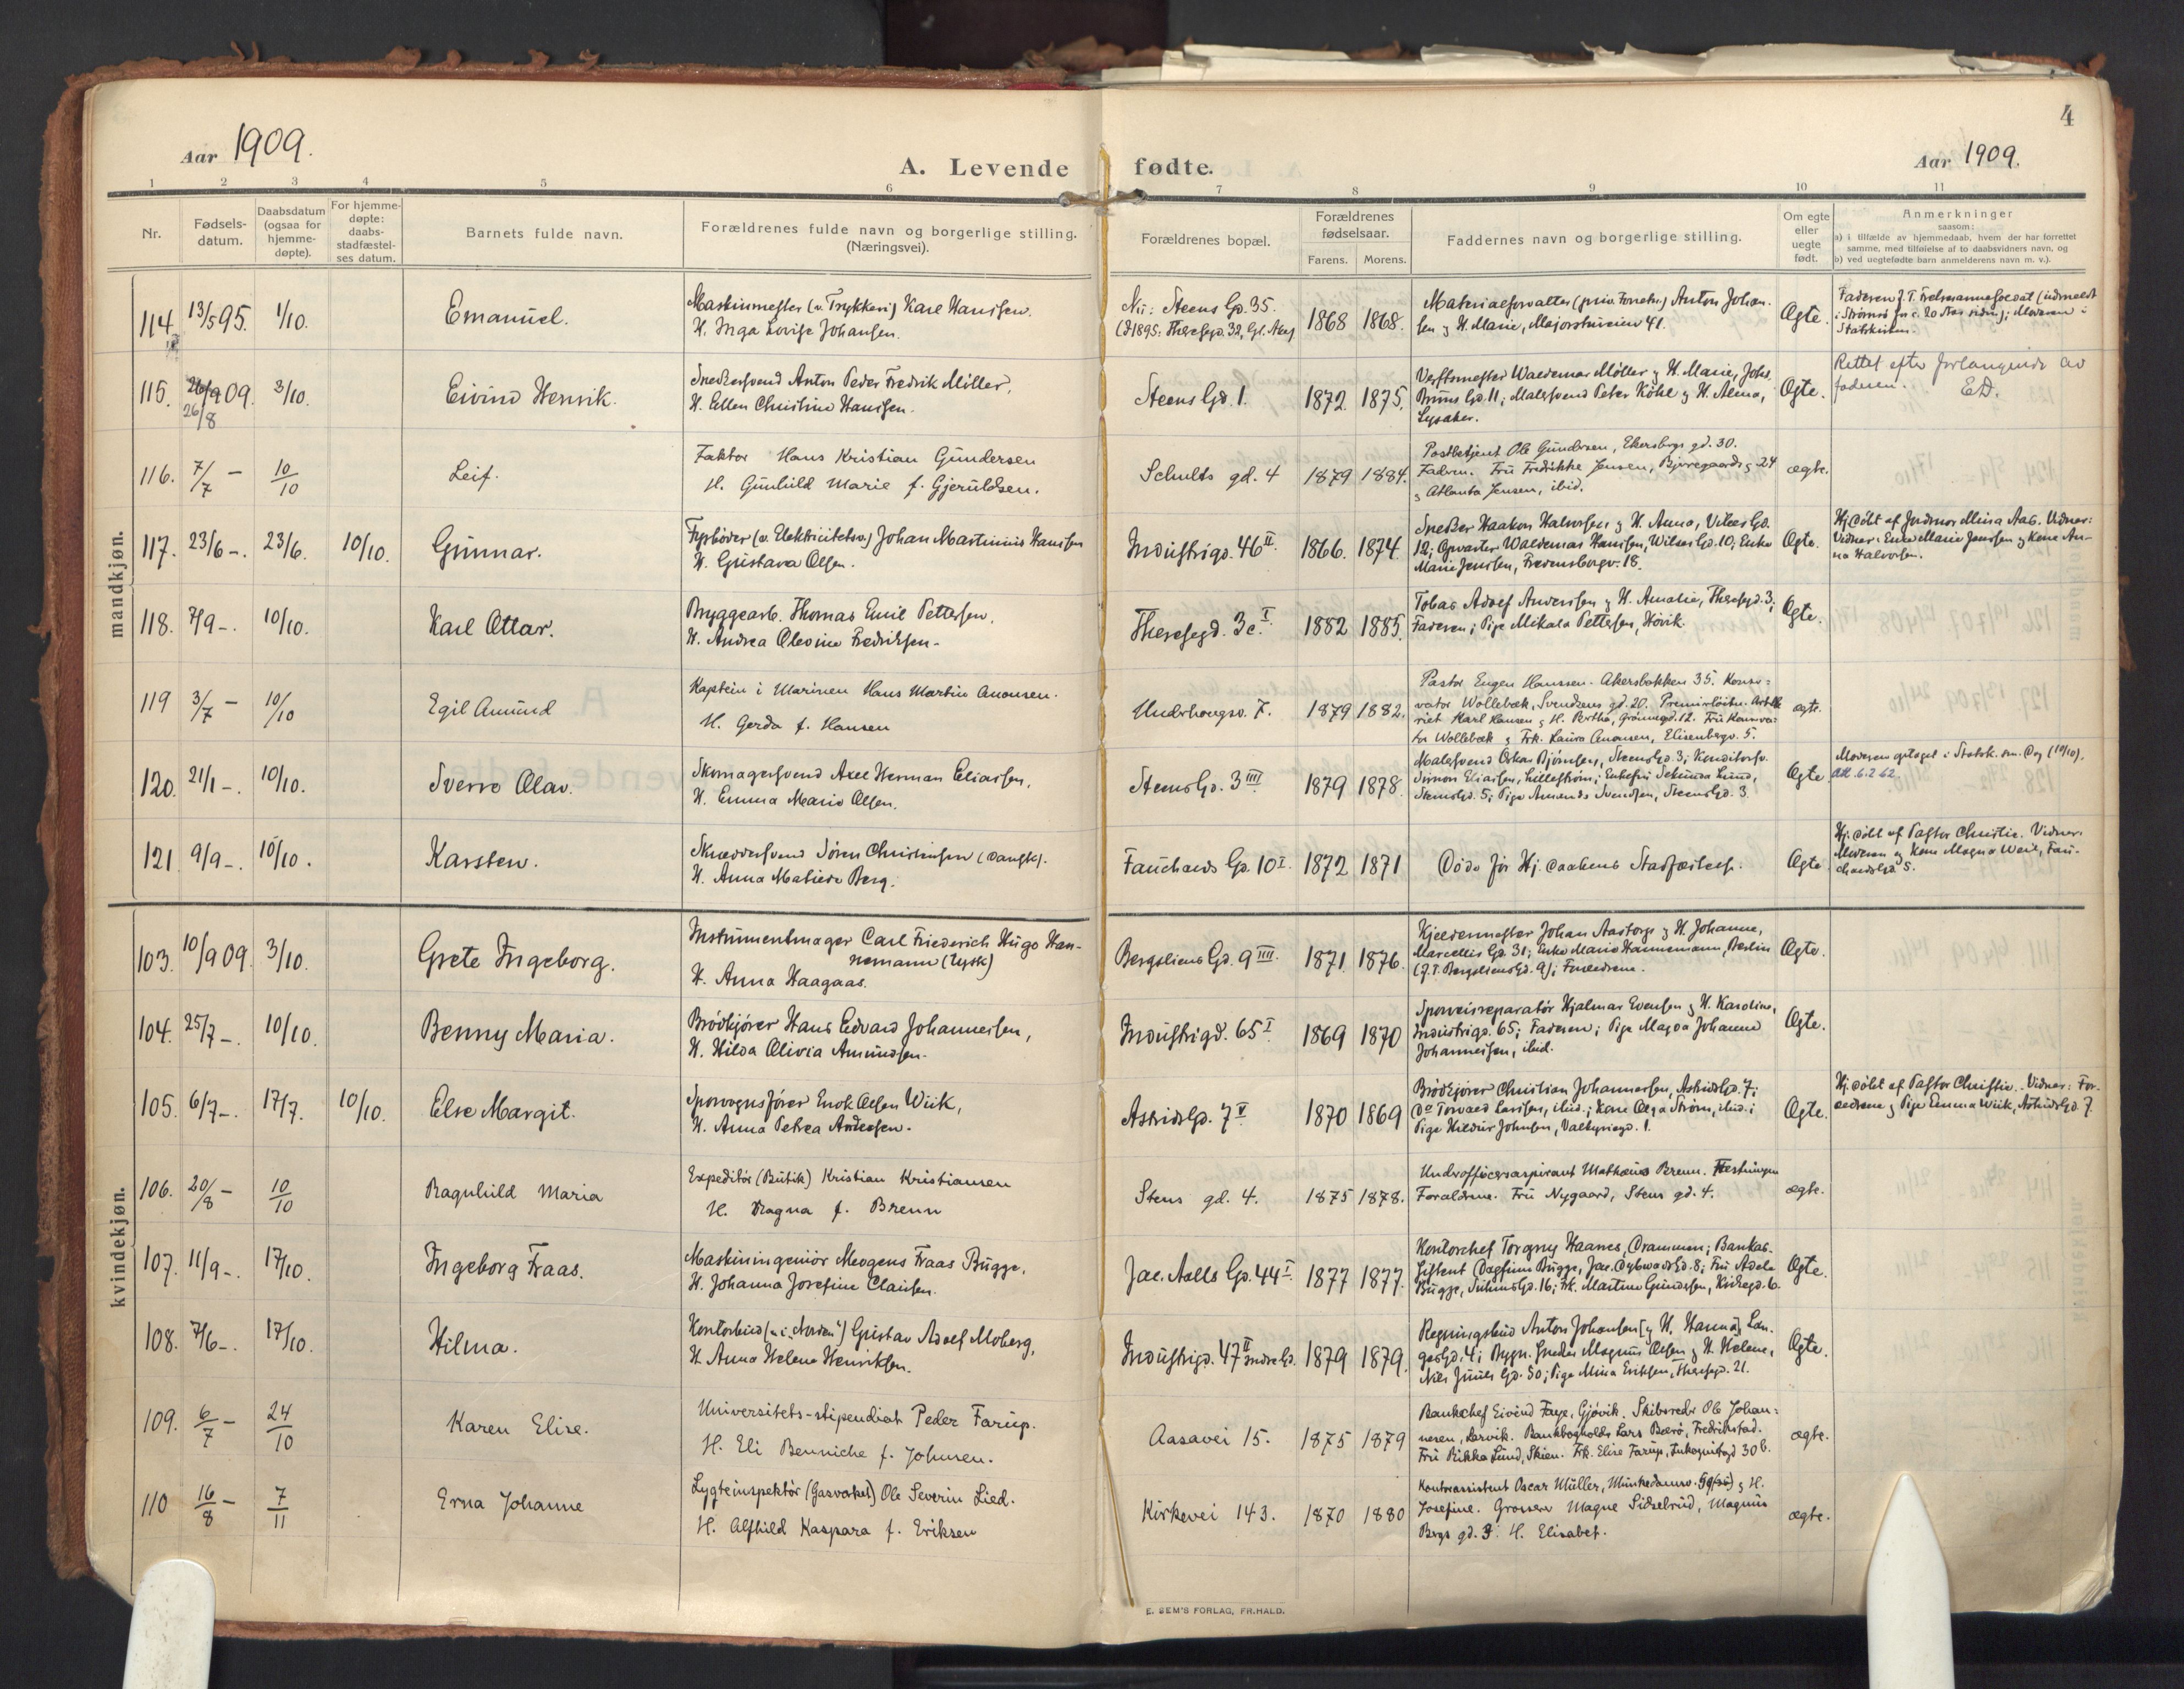 4
Aar 1909.
A. Levende fødte.
Aar 1909.
1 2 3 4 5 6 7 8 9 10 11
Nr.
Fødsels-
datum.
Daabsdatum
(ogsaa for
hjemme-
døpte).
For hjemme-
døpte:
daabs-
stadfæstel-
ses datum.
Barnets fulde navn.
Forældrenes fulde navn og borgerlige stilling.
(Næringsvei).
Forældrenes bopæl.
Forældrenes
fødselsaar.
Farens. Morens.
Faddernes navn og borgerlige stilling.
Om egte
eller
uegte
født.
Anmerkninger
saasom:
a) i tilfælde av hjemmedaab, hvem der har forrettet
samme, med tilføielse af to daabsvidners navn, og
b) ved uegtefødte barn anmelderens navn m. v.).
mandkjøn.
114. 13/5 95. 1/10. Emanuel.
Maskinmester (v. Trykkeri) Karl Hansen.
H. Inga Lovise Johansen.
Nu: Steens Gd. 35.
(d 1895: Theresegd. 32, Gl. Aker)
1868 1868.
Materialforvalter (priv. Forretn.) Anton Johan-
sen og H. Marie, Majorstuveien 41.
Ægte.
115. 26/9 09. 3/10. Eivind Henrik.
26/8
Snedkersvend Anton Peder Fredrik Müller,
H. Ellen Christine Hansen.
Steens Gd. 1. 1872. 1875.
Verftsmester Waldemar Møller og H. Marie, Johs.
Bruns Gd. 11; Malersvend Peter Köhl og H. Alma,
Lysaker.
Ægte.
Rettet efter forlangende av
faderen. ED.
116. 7/7 – 10/10 Leif.
Faktor Hans Kristian Gundersen
H. Gunhild Marie f. Gjeruldsen.
Schults gd. 4 1879 1884.
Postbetjent Ole Gundersen, Ekersbergs gd. 30.
Faderen. Fru Fredrikke Jensen, Bjerregaards g 24
og Atlanta Jensen, ibid.
ægte.
117. 23/6 –. 23/6. 10/10. Gunnar.
Fyrbøder (v. Elektricitetsv.) Johan Martinius Hansen
H. Gustava Olsen.
Industrigd. 46 II. 1866. 1874.
Snedker Haakon Halvorsen og H. Anna, Vibes Gd.
12; Opvarter Waldemar Hansen, Wilses Gd. 10; Enke
Marie Jensen, Fredensborgv. 18.
Ægte.
Hj. døbt af Jordmor Mina Aas. Vidner:
Vidner: Enke Marie Jensen og Kone An-
na Halvorsen.
118. 7/9 –. 10/10. Karl Ottar.
Bryggearb. Thomas Emil Pettersen,
H. Andrea Olevine Fredriksen.
Theresegd. 3c. I 1882 1885.
Tobias Adolf Andersen og H. Amalie, Theresegd. 3;
Faderen; Pige Mikala Pettersen, Høvik.
Ægte.
119 3/7 – 10/10 Egil Amund
Kaptein i Marinen Hans Martin Anonsen.
H. Gerda f. Hansen
Underhaugsv. 7. 1879 1882.
Pastor Eugen Hanssen. Akersbakken 35. Konser-
vator Wollebæk, Svendsens gd. 20. Premierløitn. Artille
riet Karl Hansen og H. Bertha, Grønnegd. 12. Fru Konserva-
tor Wollebæk og Frk. Laura Anonsen, Elisenbergv. 5.
ægte.
120. 21/1 –. 10/10. Sverre Olav.
Skomagersvend Axel Herman Eliassen,
H. Emma Marie Olsen.
Steens Gd. 3 IIII 1879 1878.
Malersvend Oskar Bjørnsen, Steens Gd. 3; Konditorsv.
Simon Eliassen, Lillestrøm; Enkefru Sekunda Lund,
Steens Gd. 5; Pige Amanda Svendsen, Steens Gd. 3
Ægte
Moderen optaget i Statsk. sm. Dag (10/10).
121 9/9 –. 10/10. Karsten.
Skræddersvend Søren Christensen (dansk).
H. Anna Matilde Berg.
Fauchalds Gd. 10 I. 1872 1871
Døde før Hj. daabens Stadfæstelse.
Ægte
Hj. døbt af Pastor Christie. Vidner:
Moderen og Kone Magna Weil, Fau-
chalds Gd 5.
kvindekjøn.
103. 10/9 09. 3/10. Grete Ingeborg.
Instrumentmager Carl Friederich Hugo Han-
nemann (tysk)
H. Anna Haagaas.
Bergsliens Gd. 9 IIII. 1871. 1876.
Kjeldermester Johan Aastorp og H. Johanne,
Marcellis Gd. 31; Enke Maria Hannemann, Berlin
(f. T. Bergsliens Gd. 9); Forældrene.
Ægte.
104. 25/7 –. 10/10. Benny Maria.
Brødkjører Hans Edvard Johannessen,
H. Hilda Olivia Amundsen.
Industrigd. 65 I. 1869 1870
Sporveisreparatør Hjalmar Evensen og H. Karoline,
Industrigd. 65; Faderen; Pige Magda Johanne
Johannessen, ibid.
Ægte.
105. 6/7 –. 17/7. 10/10. Else Margit.
Sporvognsfører Enok Olsen Wiik,
H. Anna Petrea Andersen.
Astrids Gd. 7 V. 1870 1869
Brødkjører Christian Johannessen, Astrids Gd. 7;
do Torvald Larsen, ibid.; Kone Olga Strøm, ibid.;
Pige Hildur Johnsen, Valkyriegd. 1.
Ægte.
Hj. døbt af Pastor Christie. Vidner: For-
ældrene og Pige Emma Wiik, Astrids Gd. 7.
106. 20/8 – 10/10 Ragnhild Maria
Expeditør (Butik) Kristian Kristiansen
H. Magna f. Brenn
Stens gd. 4. 1875 1878.
Underofficersaspirant Mathæus Brenn. Festningen
Forældrene. Fru Nygaard, Stens gd. 4.
ægte.
107. 11/9 –. 17/10. Ingeborg Fraas.
Maskiningeniør Mogens Fraas Bugge,
H. Johanna Josefine Clausen.
Jac. Aalls Gd. 44 I. 1877 1877.
Kontorchef Torgny Haanes, Drammen; Bankas-
sistent Dagfinn Bugge, Jac. Dybwads Gd. 8; Fru Adele
Bugge, Suhms Gd. 16; Frk. Martine Gundersen, Kirkegd. 6.
Ægte.
108. 7/6 –. 17/10. Hilma.
Kontorbud (v. i „Norden") Gustav Adolf Moberg,
H. Anna Helene Henriksen.
Industrigd. 47 II Indre Gd. 1879 1879.
Regningsbud Anton Johansen [og H. Hanna], Lan-
ges Gd. 4; Bygn. Snedker Magnus Olsen og H. Helene,
Niels Juuels Gd. 50; Pige Mina Eriksen, Theresegd. 21.
Ægte.
109. 6/7 – 24/10 Karen Elise.
Universitets-stipendiat Peder Farup.
H. Eli Benniche f. Johnsen.
Aasavei 15. 1875 1879
Bankchef Eivind Faye, Gjøvik. Skibsreder Ole Johan-
nesen, Larvik. Bankbogholder Lars Berø, Fredrikstad.
Fru Rikka Lund, Skien. Frk. Elise Farup, Inkognitogd 30 b.
ægte.
110 16/8 – 7/11 Erna Johanne
Lygteinspektør (Gasverket) Ole Severin Lied.
H. Alfhild Kaspara f. Eriksen
Kirkevei 143. 1870 1880
Kontorassistent Oscar Müller, Munkedamsv. og H.
Josefine. Grosserer Magne Sidselrud, Magnus
Bergs gd. 3. H. Elisabet.
ægte.
E. SEM'S FORLAG, FR.HALD.